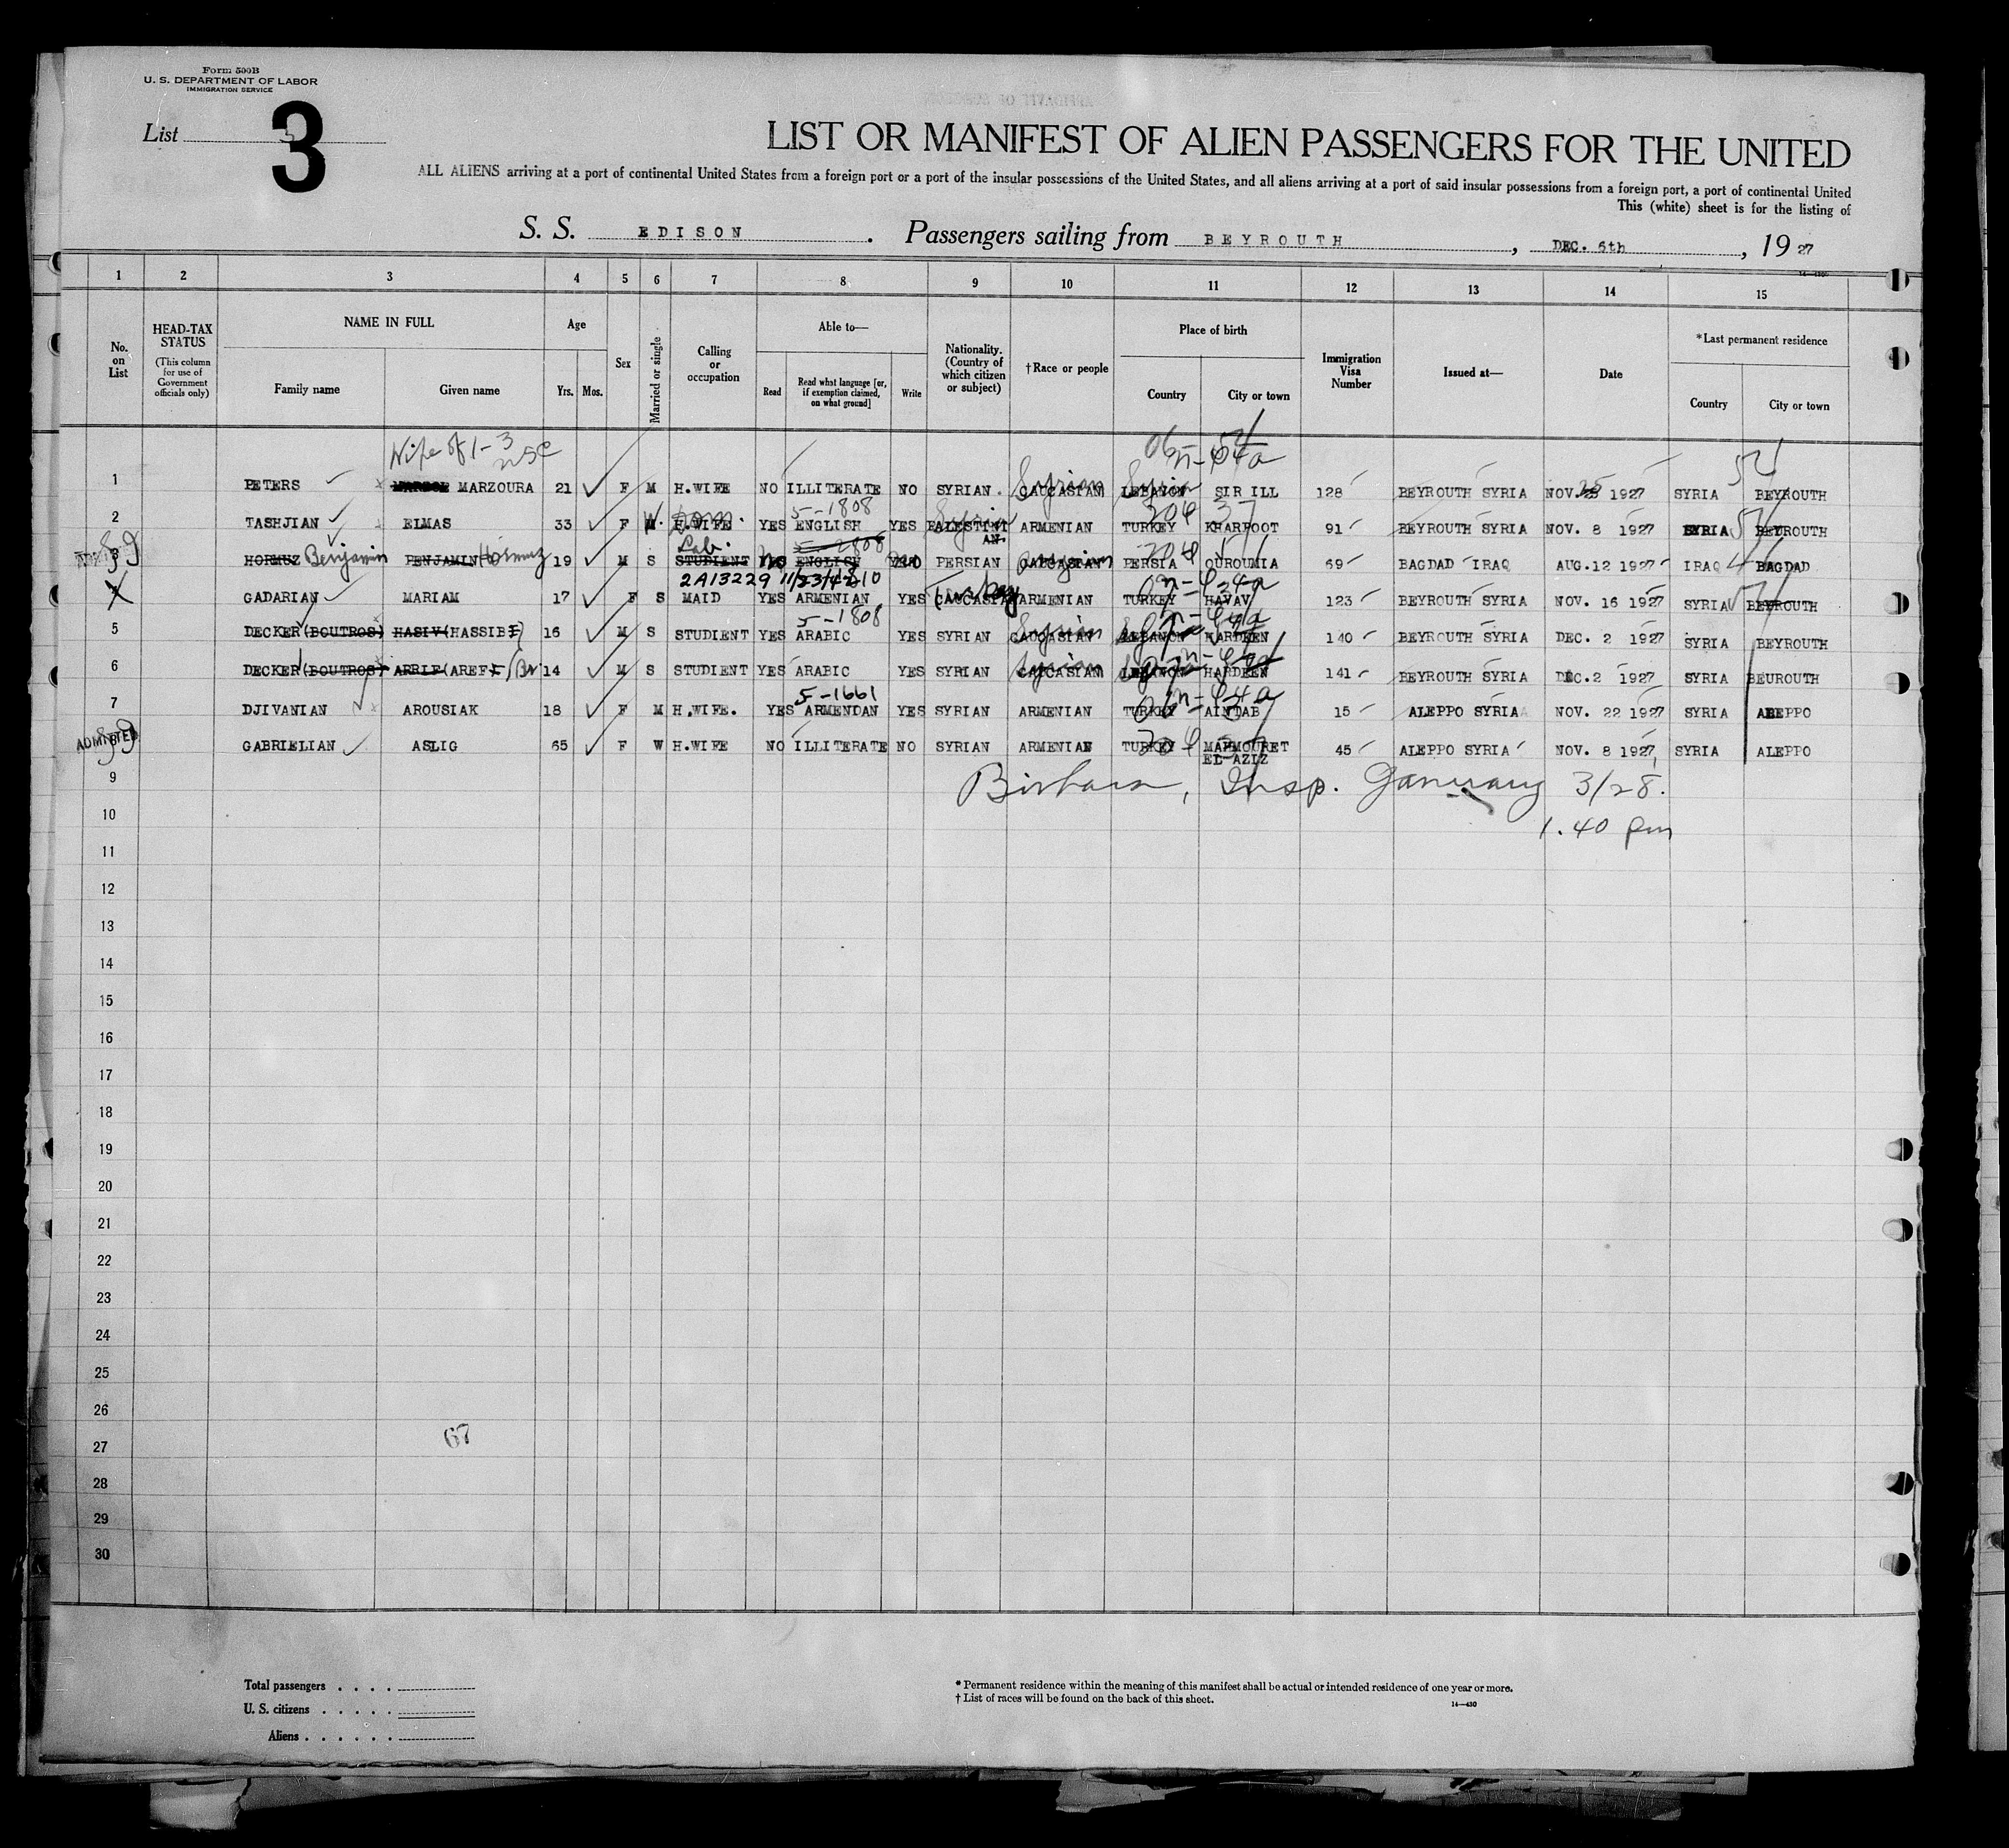 Form 500B
U. S. DEPARTMENT OF LABOR
IMMIGRATION SERVICE
List 3
LIST OR MANIFEST OF ALIEN PASSENGERS FOR THE UNITED
ALL ALIENS arriving at a port of continental United States from a foreign port or a port of the insular possessions of the United States, and all aliens arriving at a port of said insular possessions from a foreign port, a port of continental United
This (white) sheet is for the listing of
S. S. EDISON. Passengers sailing from BEYROUTH, DEC. 6th, 1927
1 2 3 4 5 6 7 8 9 10 11 12 13 14 15
No. on List
HEAD-TAX STATUS
(This column for use of Government officials only)
NAME IN FULL
Family name Given name
Age
Yrs. Mos.
Sex
Married or single
Calling or occupation
Able to—
Read Read what language [or, if exemption claimed, on what ground] Write
Nationality. (Country of which citizen or subject)
†Race or people
Place of birth
Country City or town
Immigration Visa Number
Issued at—
Date
*Last permanent residence
Country City or town
Wife of 1-3
1 PETERS MARZOURA 21 F M H.WIFE NO ILLITERATE NO SYRIAN. CAUCASIAN Syrian LEBANON Syria SIR ILL 128 BEYROUTH SYRIA NOV. 1927 SYRIA BEYROUTH
5-1808
2 TASHJIAN ELMAS 33 F M. W. H.WIFE Dom. YES ENGLISH YES PALESTINIAN. Syrian ARMENIAN TURKEY KHARPOOT 91 BEYROUTH SYRIA NOV. 8 1927 SYRIA BEYROUTH
Lab. 5-2808
3 HORMUZ Benjamin BENJAMIN Hormuz 19 M S STUDIENT no ENGLISH no PERSIAN CAUCASIAN PERSIA OUROUMIA 69 BAGDAD IRAQ AUG.12 1927 IRAQ BAGDAD
2A13229
4 GADARIAN MARIAM 17 F S MAID YES ARMENIAN YES CAUCASIAN Turkey ARMENIAN TURKEY HAVAV 123 BEYROUTH SYRIA NOV. 16 1927 SYRIA BEYROUTH
5-1808
5 DECKER (BOUTROS) HASIV (HASSIBE) 16 M S STUDIENT YES ARABIC YES SYRIAN CAUCASIAN Syrian LEBANON HARDEEN 140 BEYROUTH SYRIA DEC. 2 1927 SYRIA BEYROUTH
6 DECKER (BOUTROS) ARRIF (AREF) 14 M S STUDIENT YES ARABIC YES SYRIAN CAUCASIAN Syrian LEBANON HARDEEN 141 BEYROUTH SYRIA DEC.2 1927 SYRIA BEUROUTH
5-1661
7 DJIVANIAN AROUSIAK 18 F M H.WIFE. YES ARMENIAN YES SYRIAN ARMENIAN TURKEY AINTAB 15 ALEPPO SYRIA NOV. 22 1927 SYRIA ALEPPO
ADMITTED
GABRIELIAN ASLIG 65 F W H.WIFE NO ILLITERATE NO SYRIAN ARMENIAN TURKEY MAHMOURET EL-AZIZ 45 ALEPPO SYRIA NOV. 8 1927 SYRIA ALEPPO
9 Insp. January 3/28.
10 1.40 pm
11
12
13
14
15
16
17
18
19
20
21
22
23
24
25
26
67
27
28
29
30
Total passengers . . . .
U. S. citizens . . . . .
Aliens . . . . . .
* Permanent residence within the meaning of this manifest shall be actual or intended residence of one year or more.
† List of races will be found on the back of this sheet.
14—430